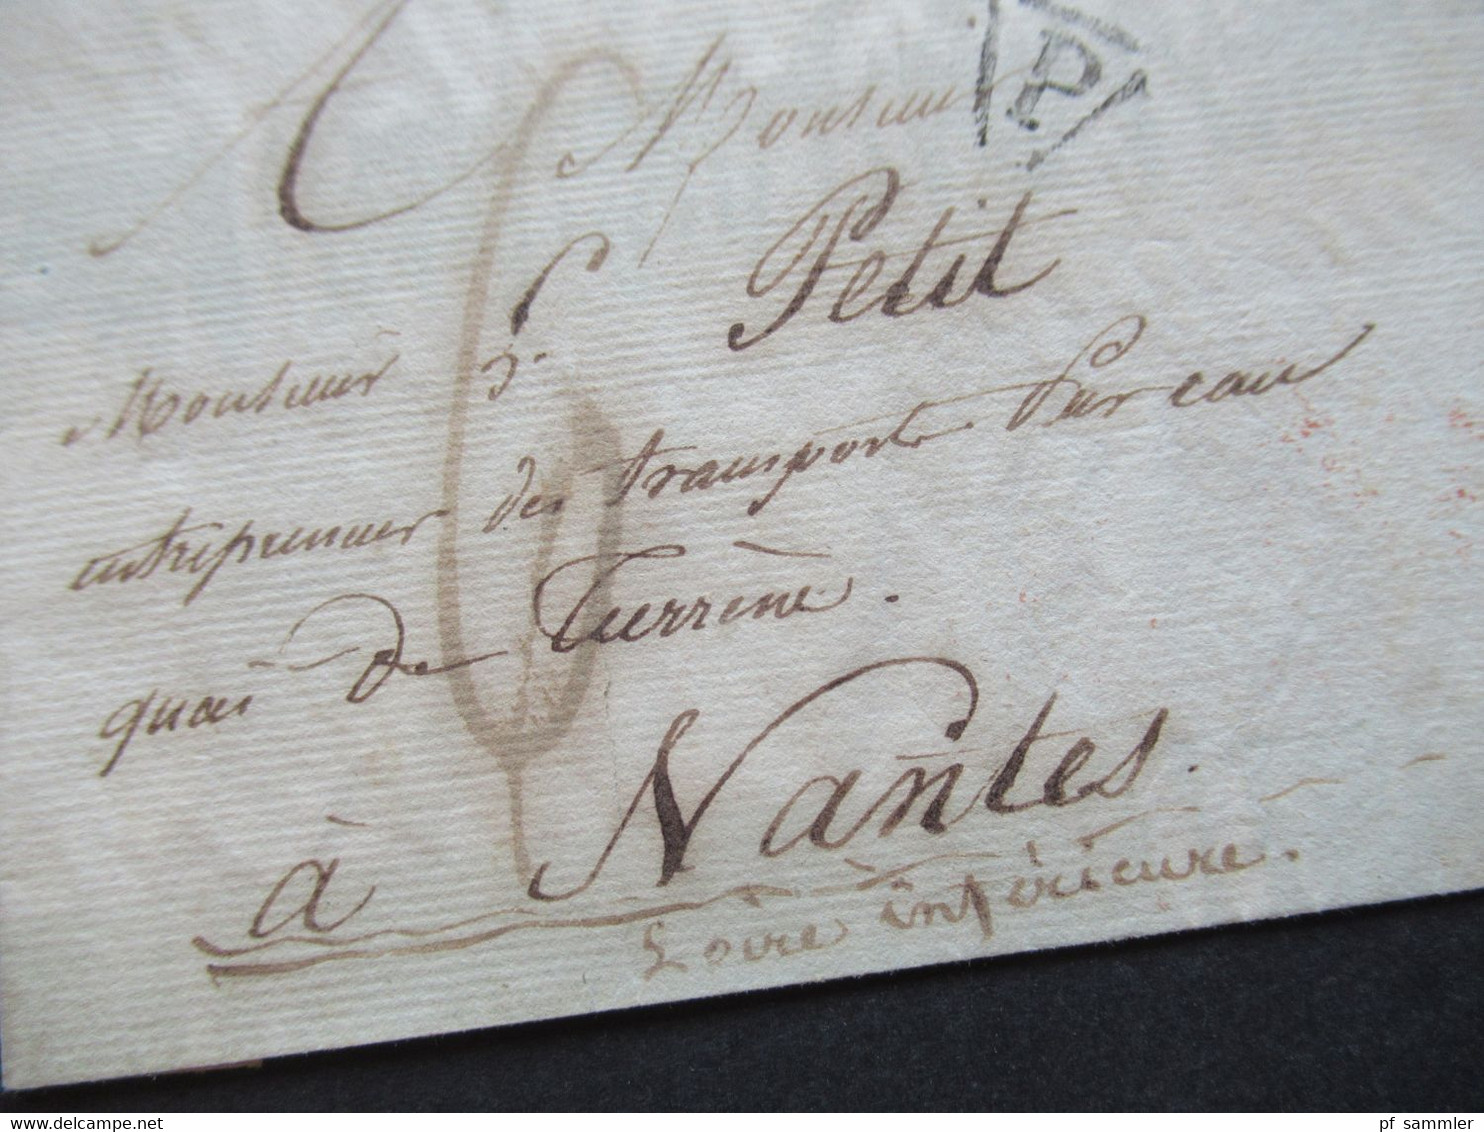 P
Monsieur
Monsieur S. Petit
entrepreneur des transports Sur eau
quai de Turrène.
à Nantes.
Loire inférieure.
delcampe.net
pf_sammler